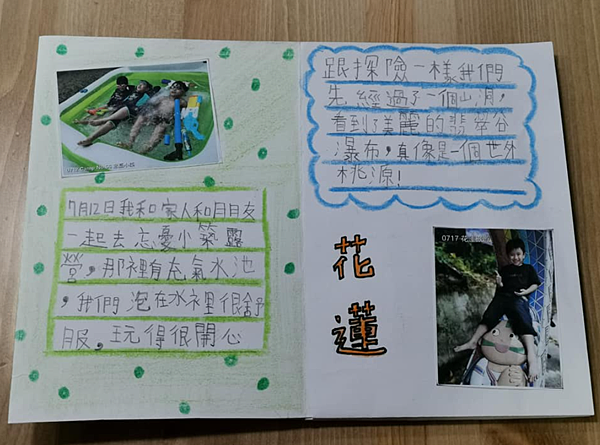 7月12日我和家人和朋友
一起去忘憂小築露
營,那裡有充氣水池
,我們泡在水裡很舒
服,玩得很開心
跟探險一樣我們
先經過了一個山洞,
看到了美麗的翡翠谷
瀑布,真像是一個世外
桃源!
花
蓮
0717 花蓮